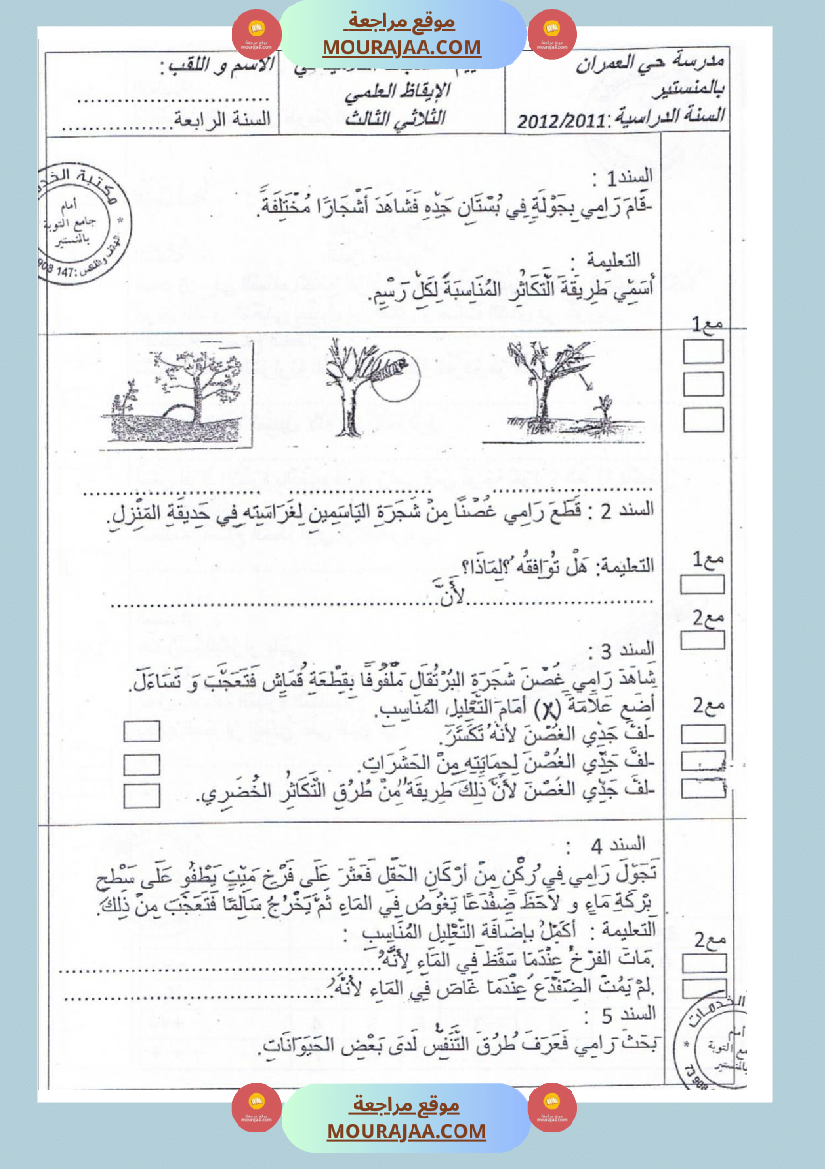 موقع مراجعة
MOURAJAA.COM
مدرسة حي العمران
بالمنستير
السنة الدراسية :2012/2011
الإيقاظ العلمي
الثلاثي الثالث
الاسم و اللقب:
..............................
السنة الرابعة..................
السند1 :
-قَامَ رَامِي بِجَوْلَةٍ فِي بُسْتَانِ جَدِّهِ فَشَاهَدَ أَشْجَارًا مُخْتَلِفَةً.
التعليمة :
أُسَمِّي طَرِيقَةَ الْتَّكَاثُرِ المُنَاسِبَةَ لِكُلِّ رَسْمٍ.
مع1
السند 2 : قَطَعَ رَامِي غُصْنًا مِنْ شَجَرَةِ اليَاسَمِين لِغَرَاسَتِهِ فِي حَدِيقَةِ المَنْزِلِ.
التعليمة: هَلْ تُوَافِقُهُ ؟لِمَاذَا؟
مع1
..............................لأَنَّ..................................................
مع2
السند 3 :
شَاهَدَ رَامِي غُصْنَ شَجَرَةِ البُرْتُقَالِ مَلْفُوفًا بِقِطْعَةِ قُمَاشٍ فَتَعَجَّبَ وَ تَسَاءَلَ.
أَضَعُ عَلَامَةَ (X) أَمَامَ التَّعْلِيلِ المُنَاسِبِ.
مع2
-لَفَّ جَدِّي الغُصْنَ لأَنَّهُ تَكَسَّرَ.
-لَفَّ جَدِّي الغُصْنَ لِحِمَايَتِهِ مِنْ الحَشَرَاتِ.
-لفَّ جَدِّي الغُصْنَ لأَنَّ ذَلِكَ طَرِيقَةٌ مِنْ طُرُقِ الْتَّكَاثُرِ الخُضَرِي.
السند 4 :
تَجَوَّلَ رَامِي فِي رُكْنٍ مِنْ أَرْكَانِ الحَقْلِ فَعَثَرَ عَلَى فَرْخٍ مَيِّتٍ يَطْفُو عَلَى سَطْحِ
بِرْكَةِ مَاءٍ و لَاحَظَ ضِفْدَعًا يَغُوصُ فِي المَاءِ ثُمَّ يَخْرُجُ سَالِمًا فَتَعَجَّبَ مِنْ ذَلِكَ.
التعليمة : أُكْمِلُ بِإِضَافَةِ التَّعْلِيلِ المُنَاسِبِ :
مع2
.مَاتَ الفَرْخُ عِنْدَمَا سَقَطَ فِي المَاءِ لِأَنَّهُ..................................................
.لَمْ يَمُتْ الضِّفْدَعُ عِنْدَمَا غَاصَ فِي المَاءِ لأَنَّهُ..................................................
السند 5 :
بَحَثَ رَامِي فَعَرَفَ طُرُقَ التَّنَفُّسِ لَدَى بَعْضِ الحَيَوَانَاتِ.
أمام
جامع التوبة
بالمنستير
موقع مراجعة
MOURAJAA.COM